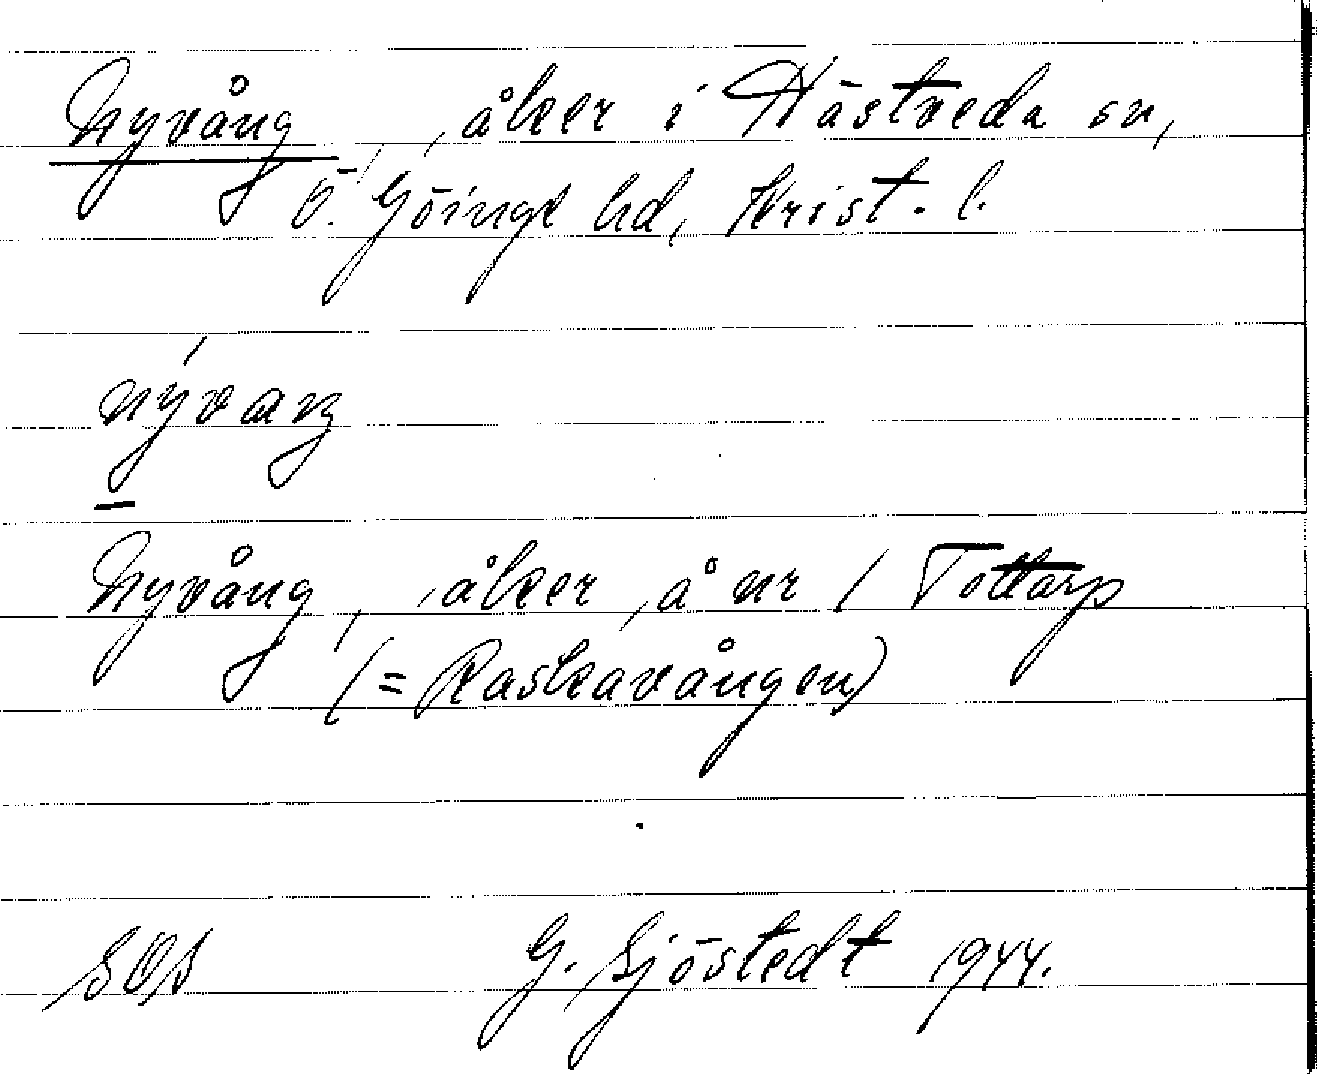 Nyvång, åker i Hästveda sn,
Ö. Göinge hd, Krist. l.
nývaŋ
Nyvång, åker, å nr 1 Tottarp
(= Raskavången)
SOS G. Sjöstedt 1944.